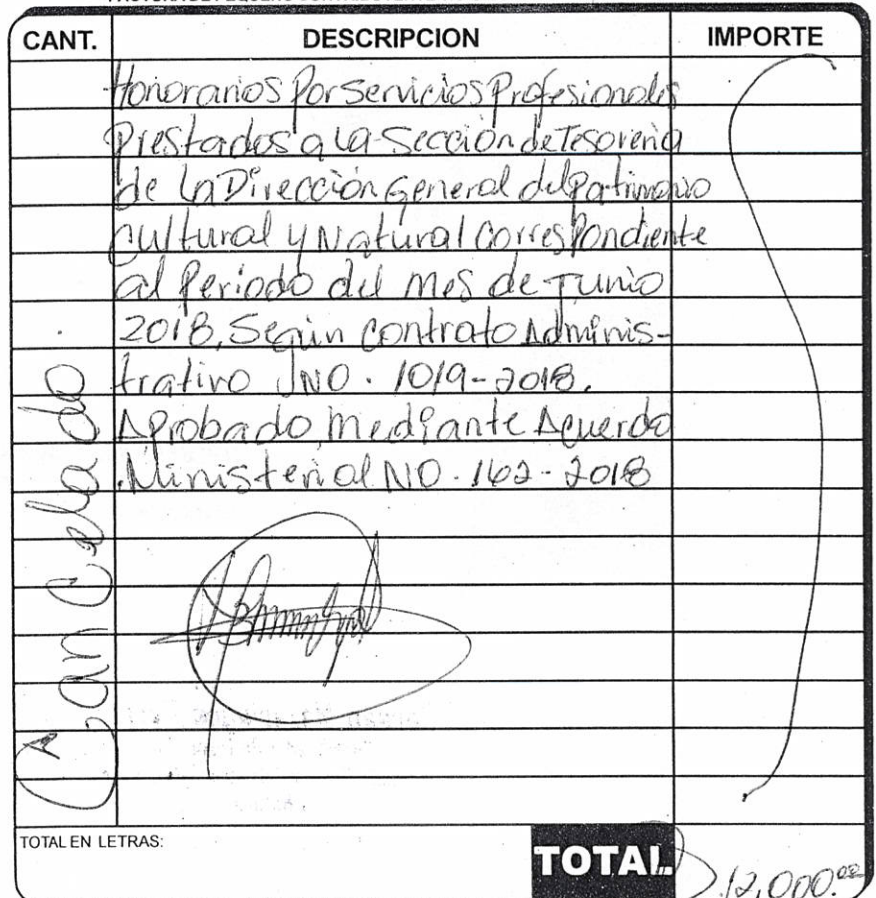 CANT. DESCRIPCION IMPORTE
Honorarios Por Servicios Profesionales
Prestados a la Sección de Tesorería
de la Dirección General del Patrimonio
Cultural y Natural Correspondiente
al Periodo del Mes de Junio
2018, Según Contrato Adminis-
trativo No. 1019-2018.
Aprobado Mediante Acuerdo
Ministerial No. 162-2018
Cancelado
TOTAL EN LETRAS:
TOTAL
12,000.00